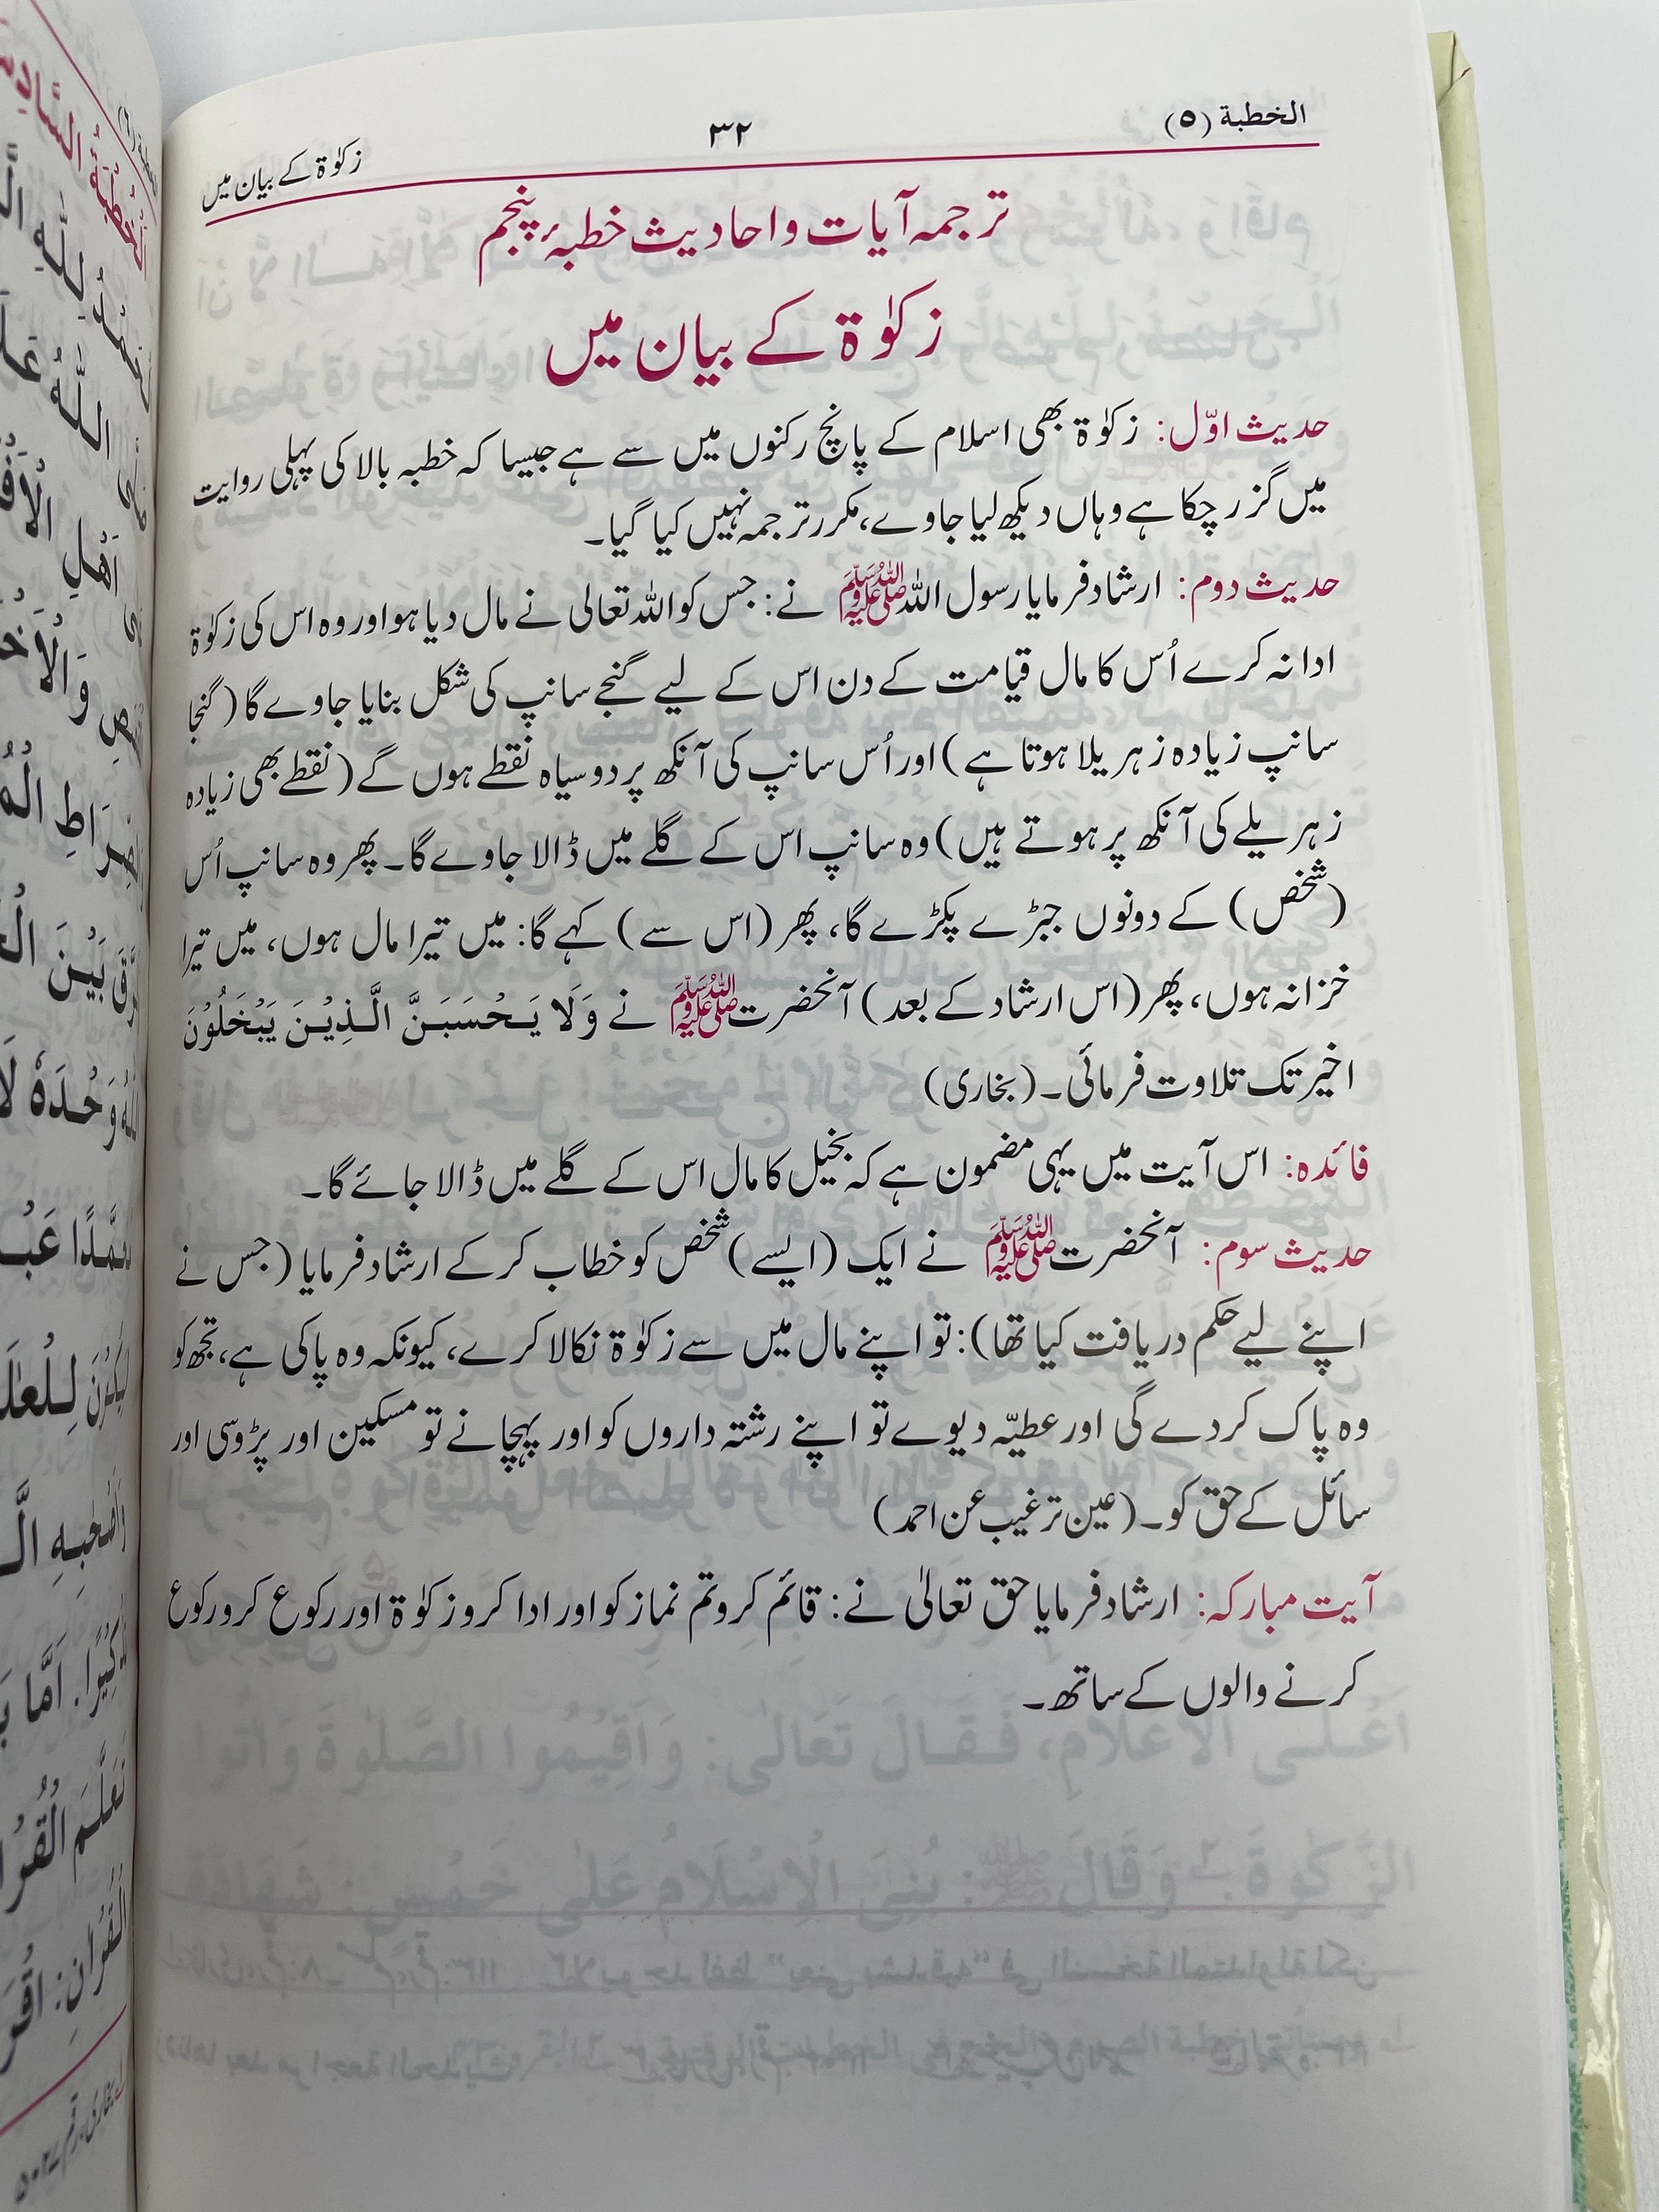 الخطبة (٥)
٣٢
زکوٰۃ کے بیان میں
ترجمہ آیات و احادیث خطبۂ پنجم
زکوٰۃ کے بیان میں
حدیث اوّل: زکوٰۃ بھی اسلام کے پانچ رکنوں میں سے ہے جیسا کہ خطبہ بالا کی پہلی روایت
میں گزر چکا ہے وہاں دیکھ لیا جاوے، مکرر ترجمہ نہیں کیا گیا۔
حدیث دوم: ارشاد فرمایا رسول اللہ ﷺ نے: جس کو اللہ تعالی نے مال دیا ہو اور وہ اس کی زکوٰۃ
ادا نہ کرے اُس کا مال قیامت کے دن اس کے لیے گنجے سانپ کی شکل بنایا جاوے گا (گنجا
سانپ زیادہ زہریلا ہوتا ہے) اور اُس سانپ کی آنکھ پر دو سیاہ نقطے ہوں گے (نقطے بھی زیادہ
زہریلے کی آنکھ پر ہوتے ہیں) وہ سانپ اس کے گلے میں ڈالا جاوے گا۔ پھر وہ سانپ اُس
(شخص) کے دونوں جبڑے پکڑے گا، پھر (اس سے) کہے گا: میں تیرا مال ہوں، میں تیرا
خزانہ ہوں، پھر (اس ارشاد کے بعد) آنحضرت ﷺ نے وَلَا يَحْسَبَنَّ الَّذِيْنَ يَبْخَلُوْنَ
اخیر تک تلاوت فرمائی۔ (بخاری)
فائدہ: اس آیت میں یہی مضمون ہے کہ بخیل کا مال اس کے گلے میں ڈالا جائے گا۔
حدیث سوم: آنحضرت ﷺ نے ایک (ایسے) شخص کو خطاب کر کے ارشاد فرمایا (جس نے
اپنے لیے حکم دریافت کیا تھا): تو اپنے مال میں سے زکوٰۃ نکالا کرے، کیونکہ وہ پاکی ہے، تجھ کو
وہ پاک کر دے گی اور عطیّہ دیوے تو اپنے رشتہ داروں کو اور پہچانے تو مسکین اور پڑوسی اور
سائل کے حق کو۔ (عین ترغیب عن احمد)
آیت مبارکہ: ارشاد فرمایا حق تعالیٰ نے: قائم کرو تم نماز کو اور ادا کرو زکوٰۃ اور رکوع کرو رکوع
کرنے والوں کے ساتھ۔